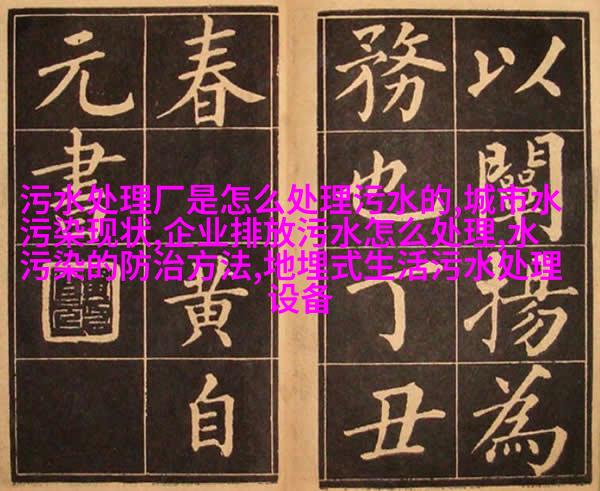 污水处理厂是怎么处理污水的,城市水
污染现状,企业排放污水怎么处理,水
污染的防治方法,地埋式生活污水处理
设备
以闡揚為
務也丁丑
春黄自
元書